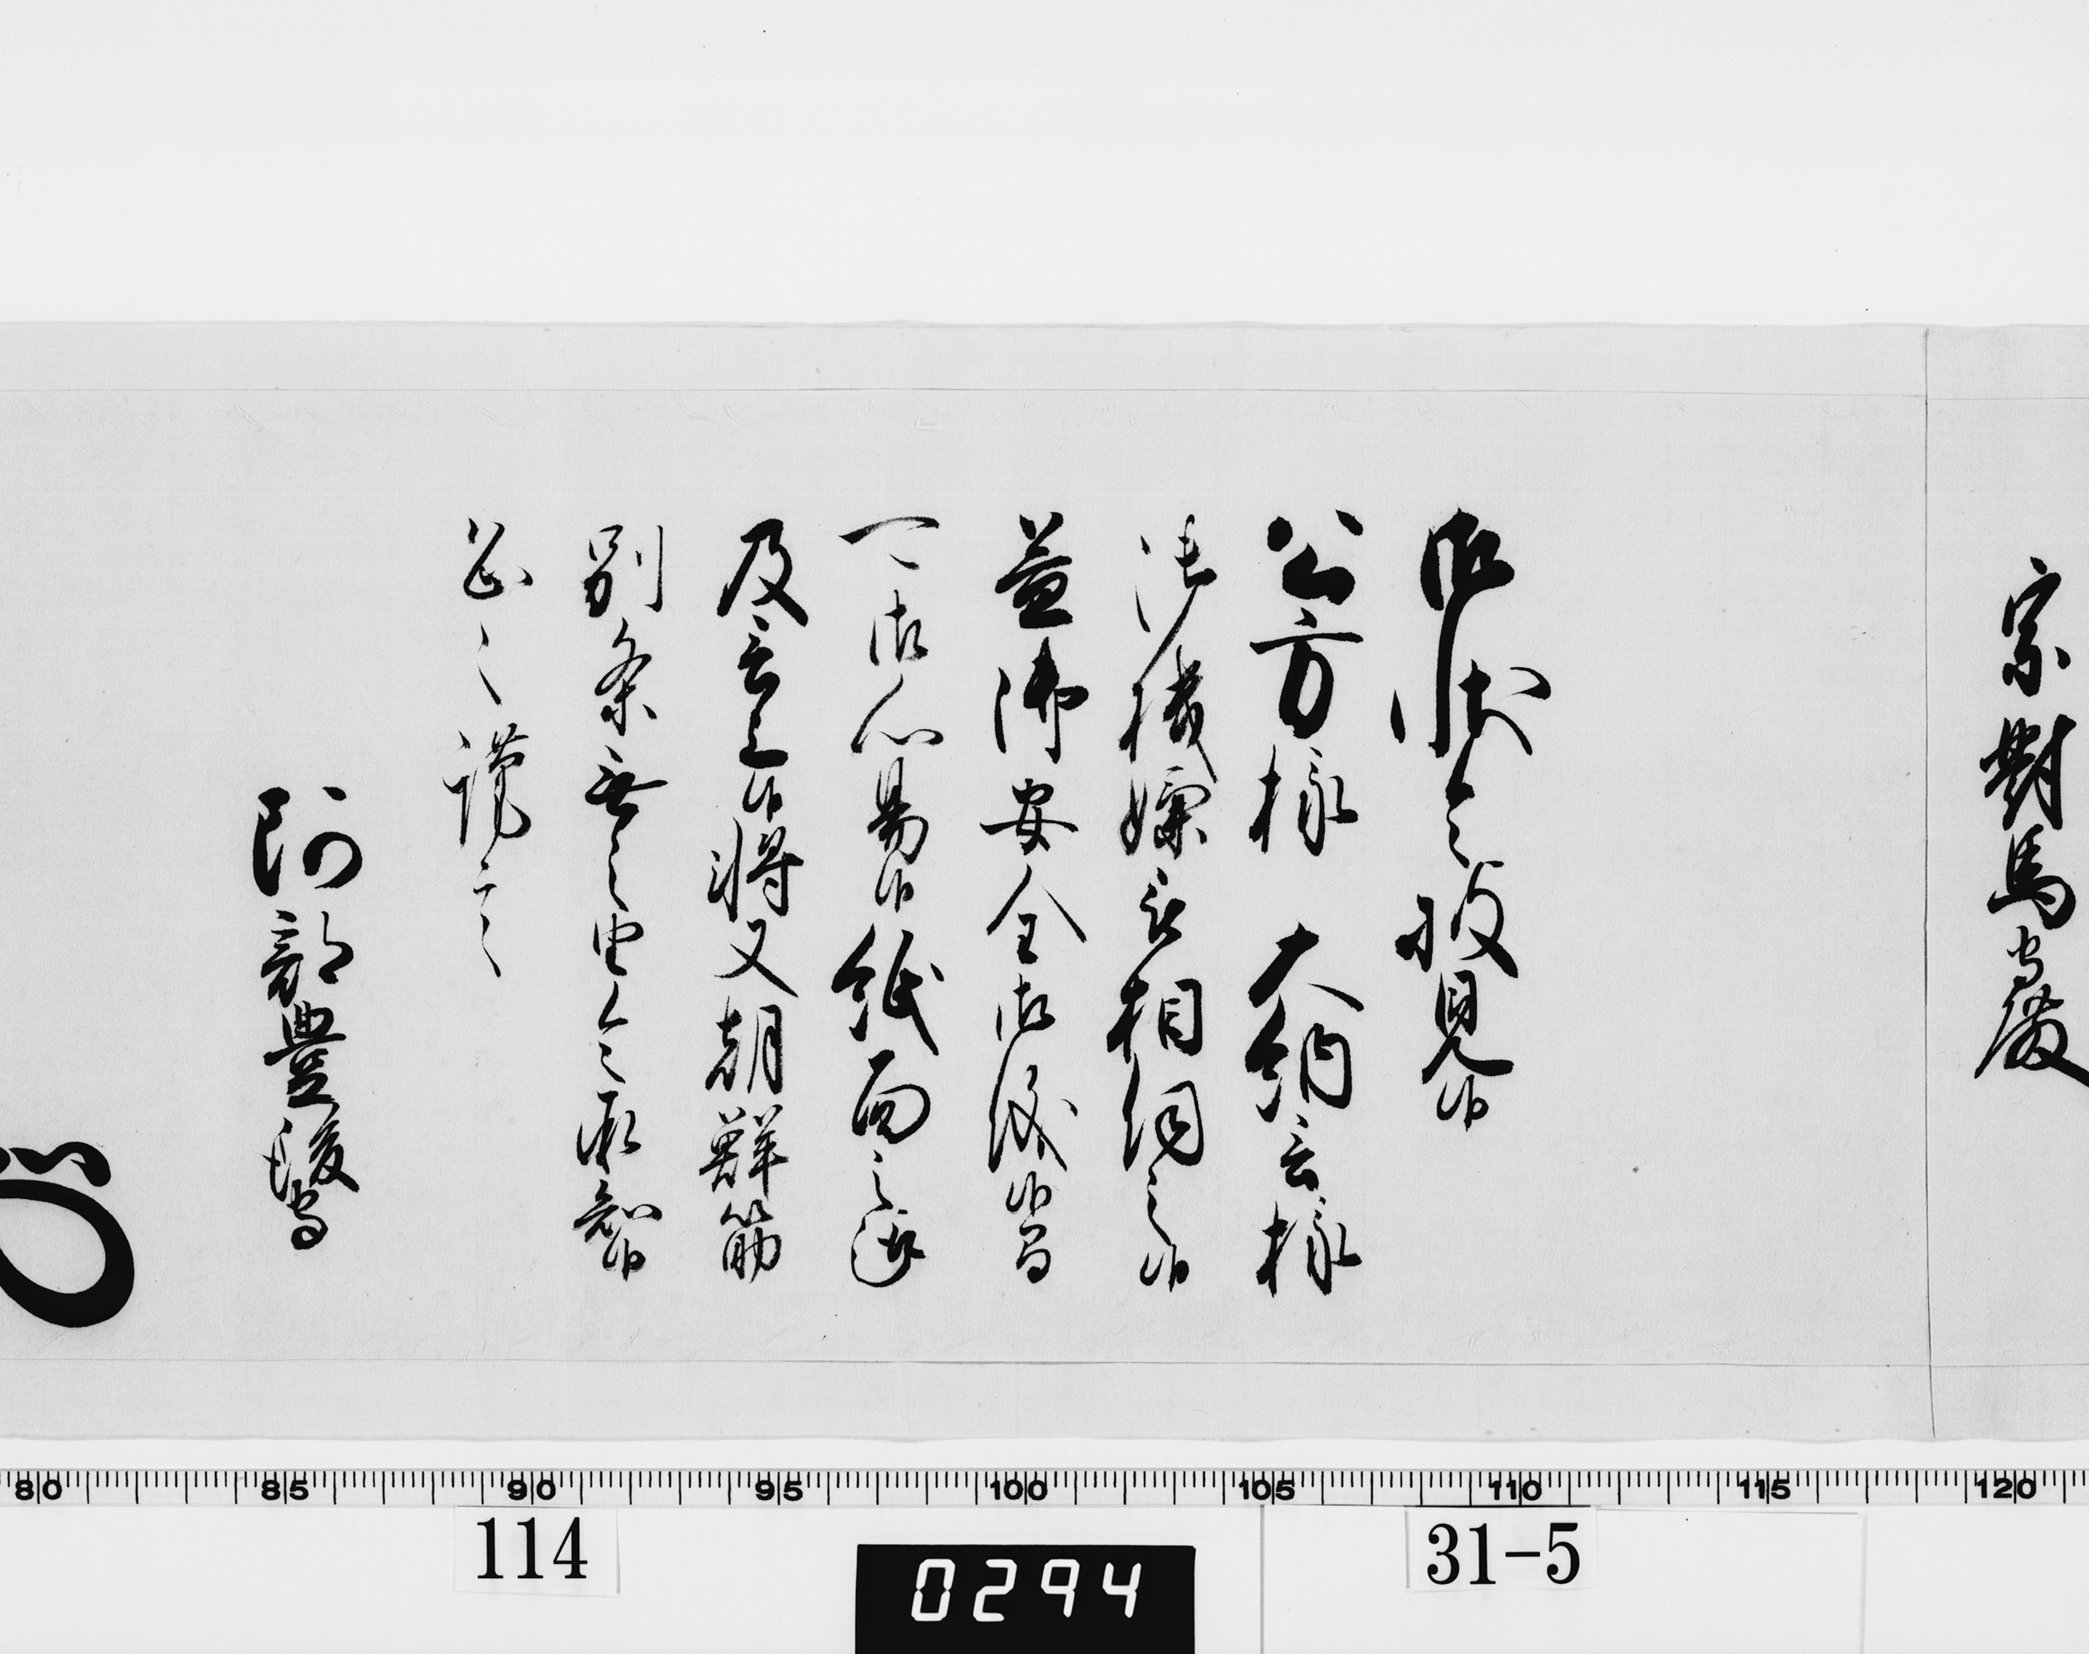 宗對馬守殿
御状令披見候
公方様 大納言様
御機嫌能被相伺之候
益御安全御儀候間
可御心易候紙面之通
及言上候将又朝鮮筋
別条無之由令承知候
恐々謹言
阿部豊後守
80 85 90 95 100 105 110 115 120
114
31-5
0294